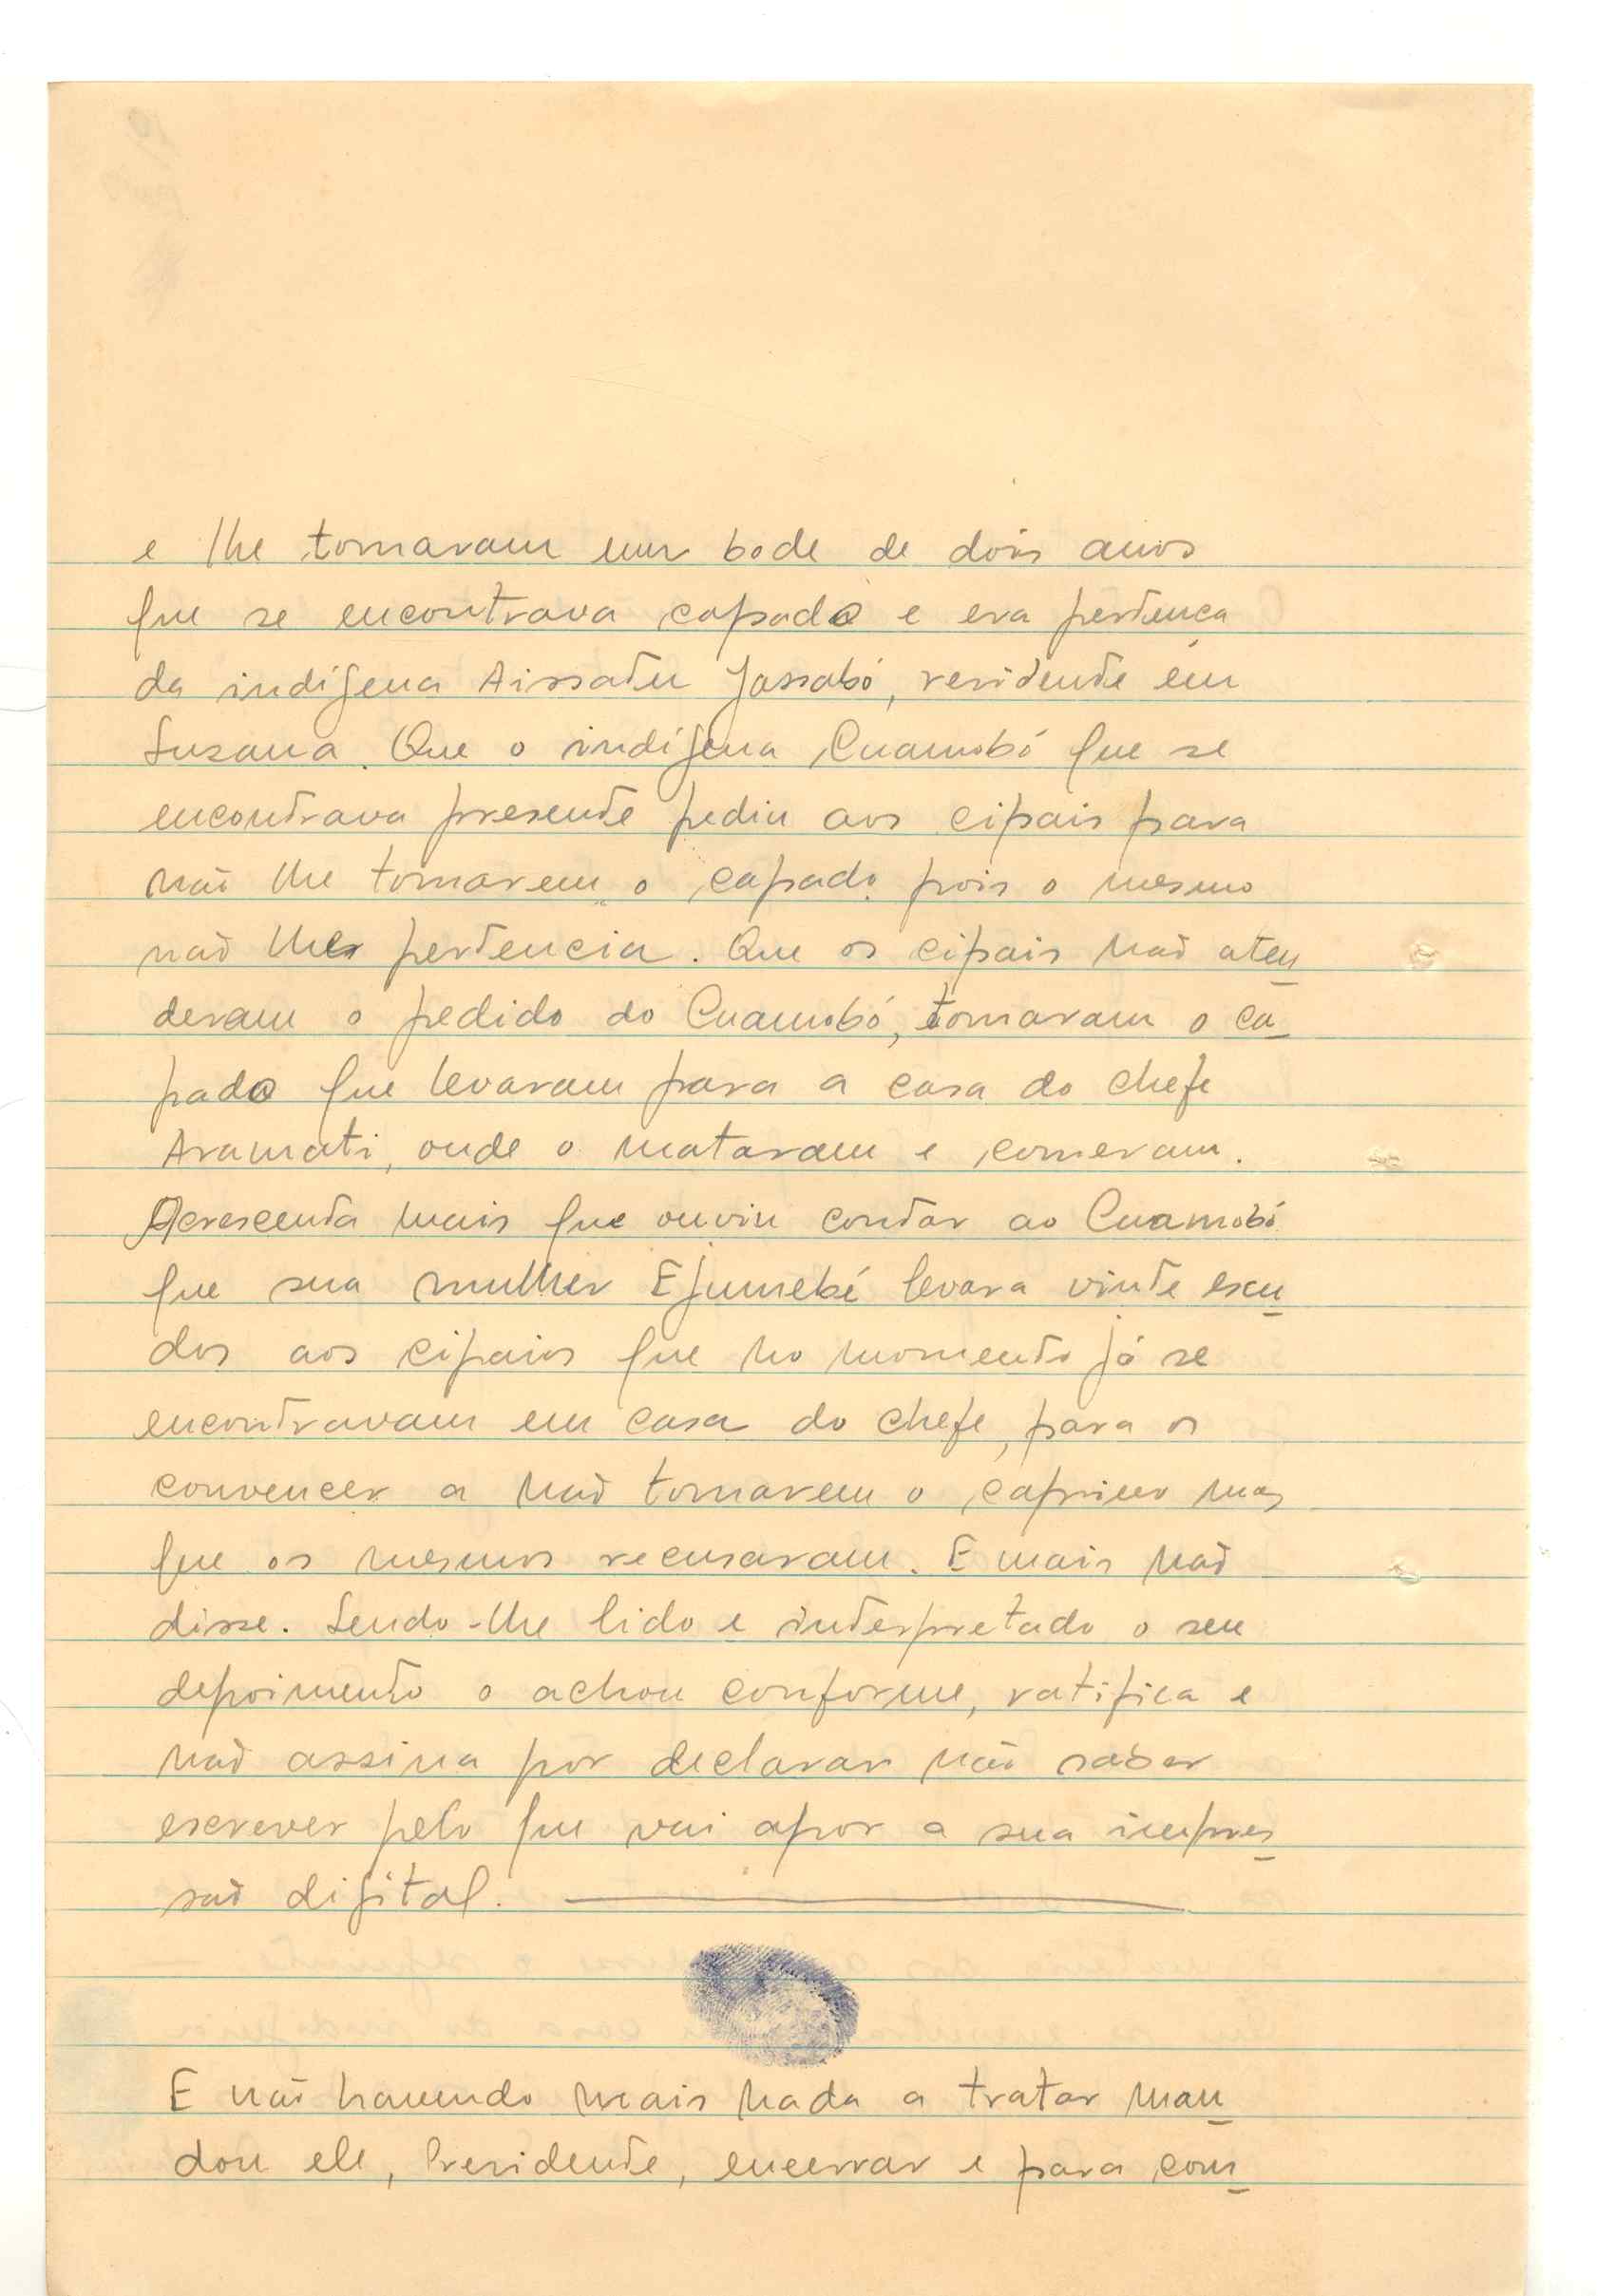 e lhe tomaram um bode de dois anos
que se encontrava capado e era pertença
da indígena Aissatu Jassabó, residente em
Susana. Que o indígena Cuamobó que se
encontrava presente pediu aos cipais para
não lhe tomarem o capado pois o mesmo
não lhe pertencia. Que os cipais não aten
deram o pedido do Cuamobó, tomaram o ca
pado que levaram para a casa do chefe
Aramati, onde o mataram e comeram.
Acrescenta mais que ouviu contar ao Cuamobó
que sua mulher Ejumebé levara vinte escu
dos aos cipaios que no momento já se
encontravam em casa do chefe, para os
convencer a não tomarem o caprino mas
que os mesmos recusaram. E mais não
disse. Sendo-lhe lido e interpretado o seu
depoimento o achou conforme, ratifica e
não assina por declarar não saber
escrever pelo que vai apor a sua impres
são digital.
E não havendo mais nada a tratar man
dou ele, Presidente, encerrar e para com